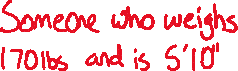 Someone who weighs
170lbs and is 5'10"